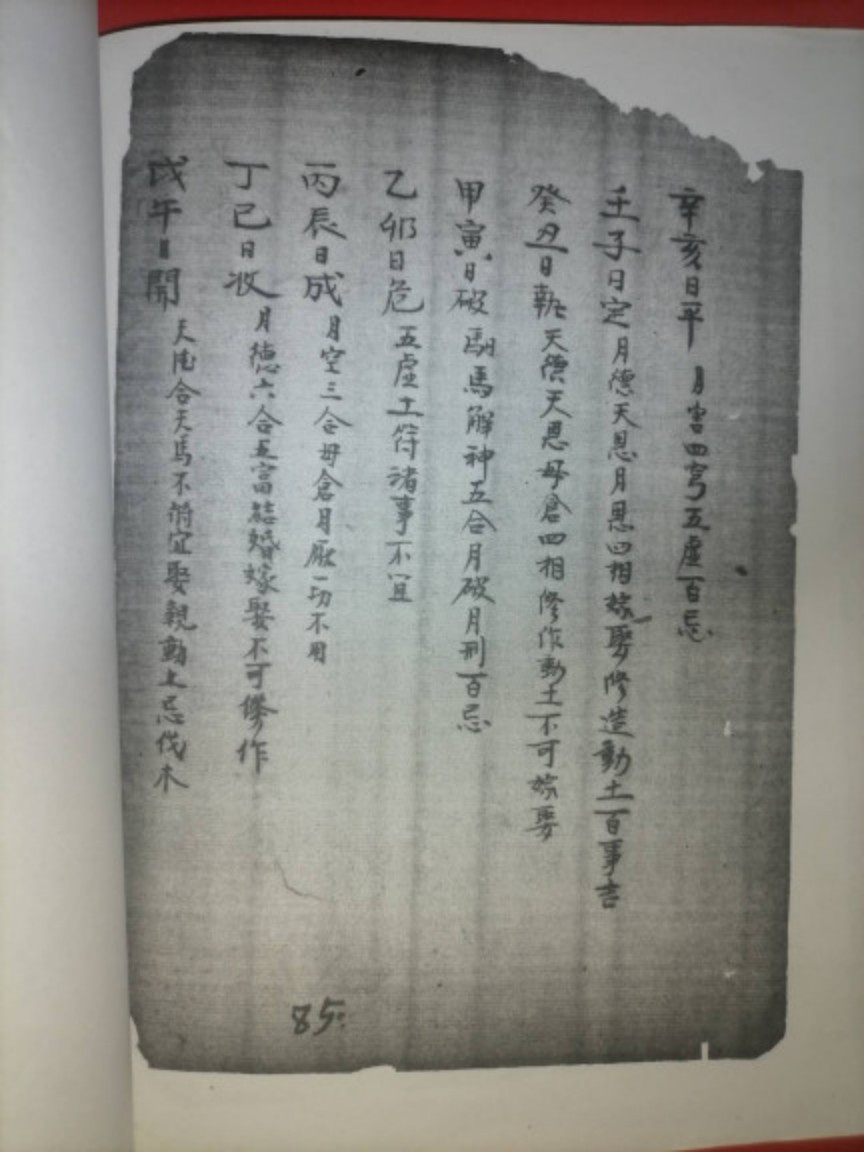 辛亥日平 月害四穷五虚百忌
壬子日定 月德天恩月恩四相嫁娶修造動土百事吉
癸丑日執 天德天恩母倉四相修作動土不可嫁娶
甲寅日破 馹馬解神五合月破月刑百忌
乙卯日危 五虚土符諸事不宜
丙辰日成 月空三合母倉月厭一切不用
丁巳日收 月德六合五富結婚嫁娶不可修作
戊午日開 天馬不 宜娶親動土忌伐木
85